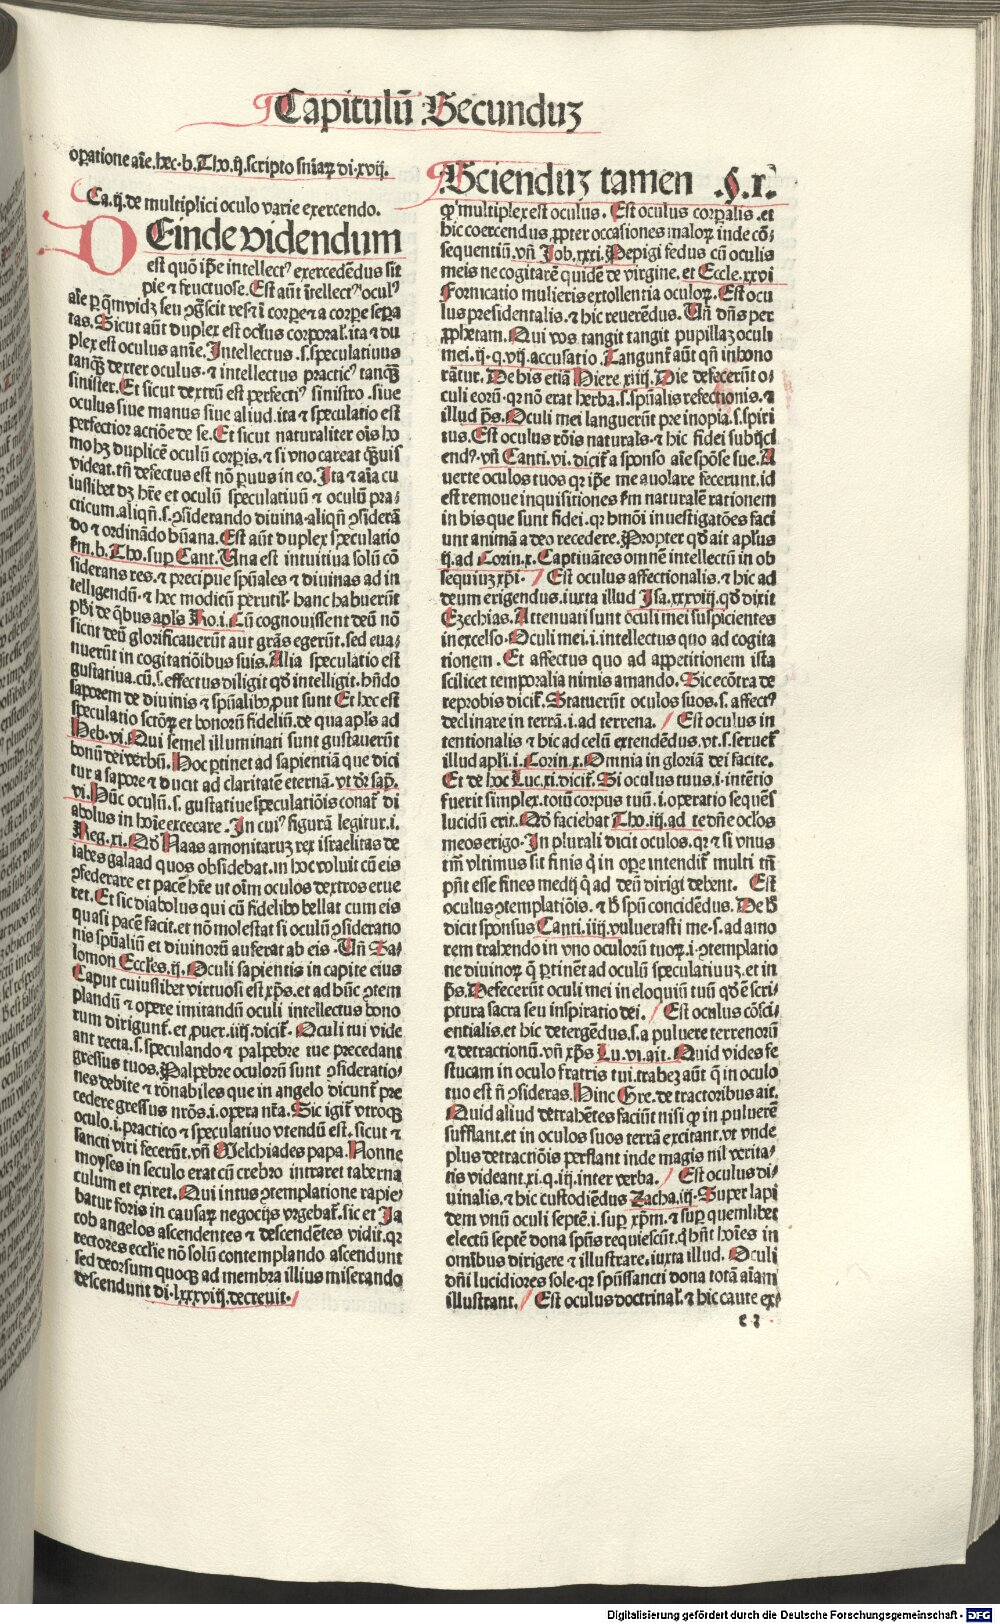 Capitulū Secunduʒ
oꝑatione aīe.hec.b.Tho.ij.scripto sniaꝝ di.xvij.
Ca.ij.de multiplici oculo varie exercendo.
DEinde videndum
est quō ip̄e intellectꝰ exercedēdus sit
pie ⁊ fructuose.Est aūt ītellectꝰ oculꝰ
aīe ꝑ quē vidꝫ seu ꝯgscit res ī corpe ⁊ a corpe sepa
tas.Sicut aūt duplex est oclus corporal.ita ⁊ du
plex est oculus anīe.Intellectus .s.speculatiuus
tanqꝫ dexter oculus.⁊ intellectus practicꝰ tanqꝫ
sinister.Et sicut dextrū est perfectiꝰ sinistro .siue
oculus siue manus siue aliud.ita ⁊ speculatio est
perfectior actiōe de se.Et sicut naturaliter oīs ho
mo hꝫ duplicē oculū corpis.⁊ si vno careat qꝫuis
videat.tn̄ defectus est nō ꝑuus in eo.Ita ⁊ aīa cu
iuslibet dꝫ hr̄e et oculū speculatiuū ⁊ oculū pra/
cticum.aliqn̄.s.ꝯsiderando diuina.aliqn̄ ꝯsiderā
do ⁊ ordināдo hūana.Est aūt duplex speculatio
fm.b.Tho.sup Cant.Una est intuitiua solū cō
siderans res.⁊ precipue spūales ⁊ diuinas ad in
telligendū.⁊ hec modicū perutil.hanc habuerūt
ph̄i de qͥbus apls Ro.i.Cū cognouissent deū nō
sicut deū glorificauerūt aut grās egerūt.sed eua/
nuerūt in cogitatiōibus suis.Alia speculatio est
gustatiua.cū.s.effectus diligit qd̄ intelligit.hn̄do
saporem de diuinis ⁊ spūalibꝰ,put sunt Et hec est
speculatio sctōꝝ et bonorū fideliū.de qua apls ad
Heb.vi.Qui semel illuminati sunt gustauerūt
bonū dei verbū.Hoc ꝑtinet ad sapientiā que dici
tur a sapore ⁊ ducit ad claritatē eternā.vt dr̄ sap.
vi.Hūc oculū.s.gustatiue speculatiōis conat di
abolus in hoīe excecare.In cuiꝰ figurā legitur.i.
Reg.xi.Qd̄ Naas amonitaruʒ rex israelitas de
iabes galaad quos obsidebat.in hoc voluit cū eis
ꝯfederare et pacē hr̄e vt oīm oculos dextros erue
ret.Et sic diabolus qui cū fidelibꝰ bellat cum eis
quasi pacē facit.et nō molestat si oculū ꝯsideratio
nis spūaliū et diuinorū auferat ab eis.Un̄ Sa/
lomon Eccles.ij.Oculi sapientis in capite eius
Caput cuiuslibet virtuosi est xp̄s.et ad hūc ꝯtem
plandū ⁊ opere imitandū oculi intellectus bono
rum dirigunt.et ꝓuer.iiij.dicit.Oculi tui vide
ant recta.s.speculando ⁊ palpebre tue precedant
gressus tuos.Palpebre oculorū sunt ꝯsideratio/
nes debite ⁊ rōnabiles que in angelo dicunt pre
cedere gressus nrōs.i.opera nr̄a.Sic igit vtroqꝫ
oculo.i.practico ⁊ speculatiuo vtendū est.sicut ⁊
sancti viri fecerūt.vn̄ Melchiades papa.Nonne
moyses in seculo erat cū crebro intraret taberna
culum et exiret.Qui intus ꝯtemplatione rapie/
batur foris in causaꝝ negocijs vrgebat.sic et Ja
cob angelos ascendentes ⁊ descendētes vidit.qꝛ
rectores ecclīe nō solū contemplando ascendunt
sed deorsum quoqꝫ ad membra illius miserando
descendunt di.lxxxviij.decreuit.
Sciendūʒ tamen .§.I.
qꝙ multiplex est oculus.Est oculus corpalis.et
hic coercendus ꝓpter occasiones maloꝝ inde cō/
sequentiū.vn̄ Job.xxxi.Pepigi fedus cū oculis
meis ne cogitarē quidē de virgine.et Eccle.xxvi
Fornicatio mulieris extollentia oculoꝝ.Est ocu
lus presidentalis.⁊ hic reuerēdus.Un̄ dn̄s per
ꝓphetam.Qui vos tangit tangit pupillaʒ oculi
mei.ij.q.vij.accusatio.Tangunt aūt qn̄ inhono
rātur.De his etiā Hiere.xiiij.Die defecerūt o/
culi eorū.qꝛ nō erat herba.s.spūalis refectionis.⁊
illud p̄s.Oculi mei languerūt pre inopia.s.spiri
tus.Est oculus rōis naturals.⁊ hic fidei subijci
endꝰ.vn̄ Canti.vi.dicit a sponso aīe spōse sue.A
uerte oculos tuos qꝛ ip̄e me auolare fecerunt.id
est remoue inquisitiones fm naturalē rationem
in his que sunt fidei.qꝛ hmōi inuestigatōes faci
unt animā a deo recedere.Propter qd̄ ait aplus
ij.ad Corin.x.Captiuātes omnē intellectū in ob
sequiuʒ xp̄i. Est oculus affectionalis.⁊ hic ad
deum erigendus.iuxta illud Isa.xxxviij.qd̄ dixit
Ezechias.Attenuati sunt oculi mei suspicientes
in excelso.Oculi mei.i.intellectus quo ad cogita
tionem.Et affectus quo ad appetitionem ista
scilicet temporalia nimis amando.Sic ecōtra de
reprobis dicit.Statuerūt oculos suos.s.affectꝰ
declinare in terrā.i.ad terrena. Est oculus in
tentionalis ⁊ hic ad celū extendēdus.vt.s.seruet
illud apli.i.Corin.x.Omnia in gloriā dei facite.
Et de hoc Luc.xi.dicit.Si oculus tuus.i.intētio
fuerit simplex.totū corpus tuū.i.operatio sequēs
lucidū erit.Qd̄ faciebat Tho.iij.ad te dn̄e oclos
meos erigo.In plurali dicit oculos.qꝛ ⁊ si vnus
tm̄ vltimus sit finis qͥ in ope intendit multi tn̄
pn̄t esse fines medij qͥ ad deū dirigi debent. Est
oculus ꝯtemplatiōis.⁊ hͥ spū concidēdus.De hͦ
dicit sponsus Canti.iiij.vulnerasti me.s.ad amo
rem trahendo in vno oculorū tuoꝝ.i.ꝯtemplatio
ne diuinoꝝ q̄ ꝑtinēt ad oculū speculatiuuʒ.et in
p̄s.Defecerūt oculi mei in eloquiū tuū qd̄ ē scri/
ptura sacra seu inspiratio dei. Est oculus cōsci/
entialis.et hic detergēdus.s.a puluere terrenorū
⁊ detractionū.vn̄ xp̄s Lu.vi.ait.Quid vides fe
stucam in oculo fratris tui.trabeʒ aūt q̄ in oculo
tuo est n̄ ꝯsideras.Hinc Gre.de tractoribus ait.
Quid aliud detrahētes faciūt nisi qꝙ in puluerē
sufflant.et in oculos suos terrā excitant.vt vnde
plus detractiōis perflant inde magis nil verita/
tis videant.xi.q.iij.inter verba. Est oculus di/
uinalis.⁊ hic custodiēdus Zacha.iij.Super lapi
dem vnū oculi septē.i.suꝑ xp̄m.⁊ suꝑ quemlibet
electū septē dona spūs requiescūt.qͥ hn̄t hoīes in
omībus dirigere ⁊ illustrare.iuxta illud.Oculi
dn̄i lucidiores sole.qꝛ spūssancti dona totā aīam
illustrant. Est oculus doctrinal.⁊ hic caute ex/
c 3
Digitalisierung gefördert durch die Deutsche Forschungsgemeinschaft - DFG